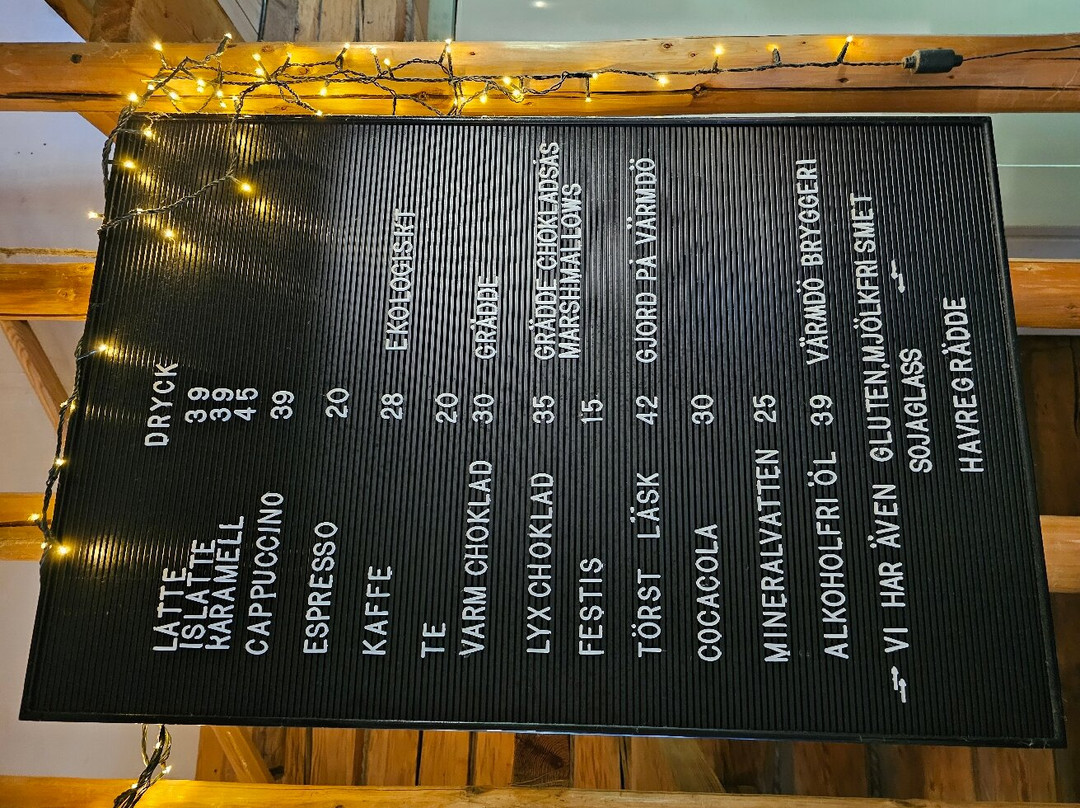 DRYCK
LATTE 39
ISLATTE 39
KARAMELL 45
CAPPUCCINO 39
ESPRESSO 20
KAFFE 28 EKOLOGISKT
TE 20
VARM CHOKLAD 30 GRÄDDE
LYX CHOKLAD 35 GRÄDDE CHOKLADSÅS
MARSHMALLOWS
FESTIS 15
TÖRST LÄSK 42 GJORD PÅ VÄRMDÖ
COCACOLA 30
MINERALVATTEN 25
ALKOHOLFRI ÖL 39 VÄRMDÖ BRYGGERI
VI HAR ÄVEN GLUTEN,MJÖLKFRI SMET
SOJAGLASS
HAVREGRÄDDE